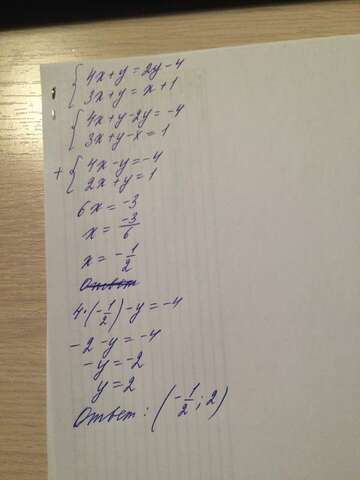 { 4x+y=2y-4
3x+y=x+1
{ 4x+y-2y=-4
3x+y-x=1
+ { 4x-y=-4
2x+y=1
6x=-3
x=-3/6
x=-1/2
Ответ
4·(-1/2)-y=-4
-2-y=-4
-y=-2
y=2
Ответ: (-1/2; 2)